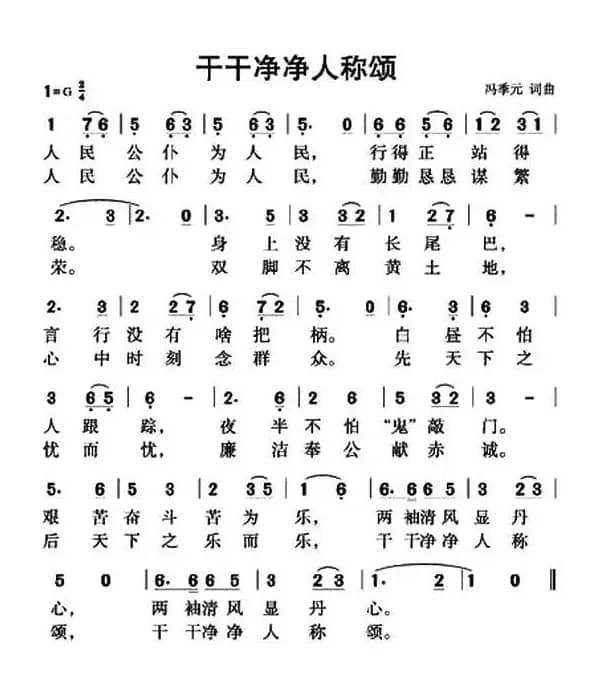 干干净净人称颂
1=G 2/4 冯季元 词曲
1 76 | 5 63 | 5 63 | 5· 0 | 66 56 | 12 31 |
人民公仆为人民，行得正站得
人民公仆为人民，勤勤恳恳谋繁
2· 3 | 2· 0 | 3· 5 | 3 32 | 1 27 | 6 - |
稳。身上没有长尾巴，
荣。双脚不离黄土地，
2· 3 | 2 27 | 6 72 | 6· 3 | 6 3 |
言行没有啥把柄。白昼不怕
心中时刻念群众。先天下之
3 65 | 6 - | 2· 6 | 2 6 | 5 32 | 1 - |
人跟踪，夜半不怕“鬼”敲门。
忧而忧，廉洁奉公献赤诚。
5· 6 | 5 3 | 2 3 | 1 6 | 6·665 | 3 23 |
艰苦奋斗苦为乐，两袖清风显丹
后天下之乐而乐，干干净净人称
5 0 | 6·665 | 3 23 | 1· 2 | 1 0 ‖
心，两袖清风显丹心。
颂，干干净净人称颂。